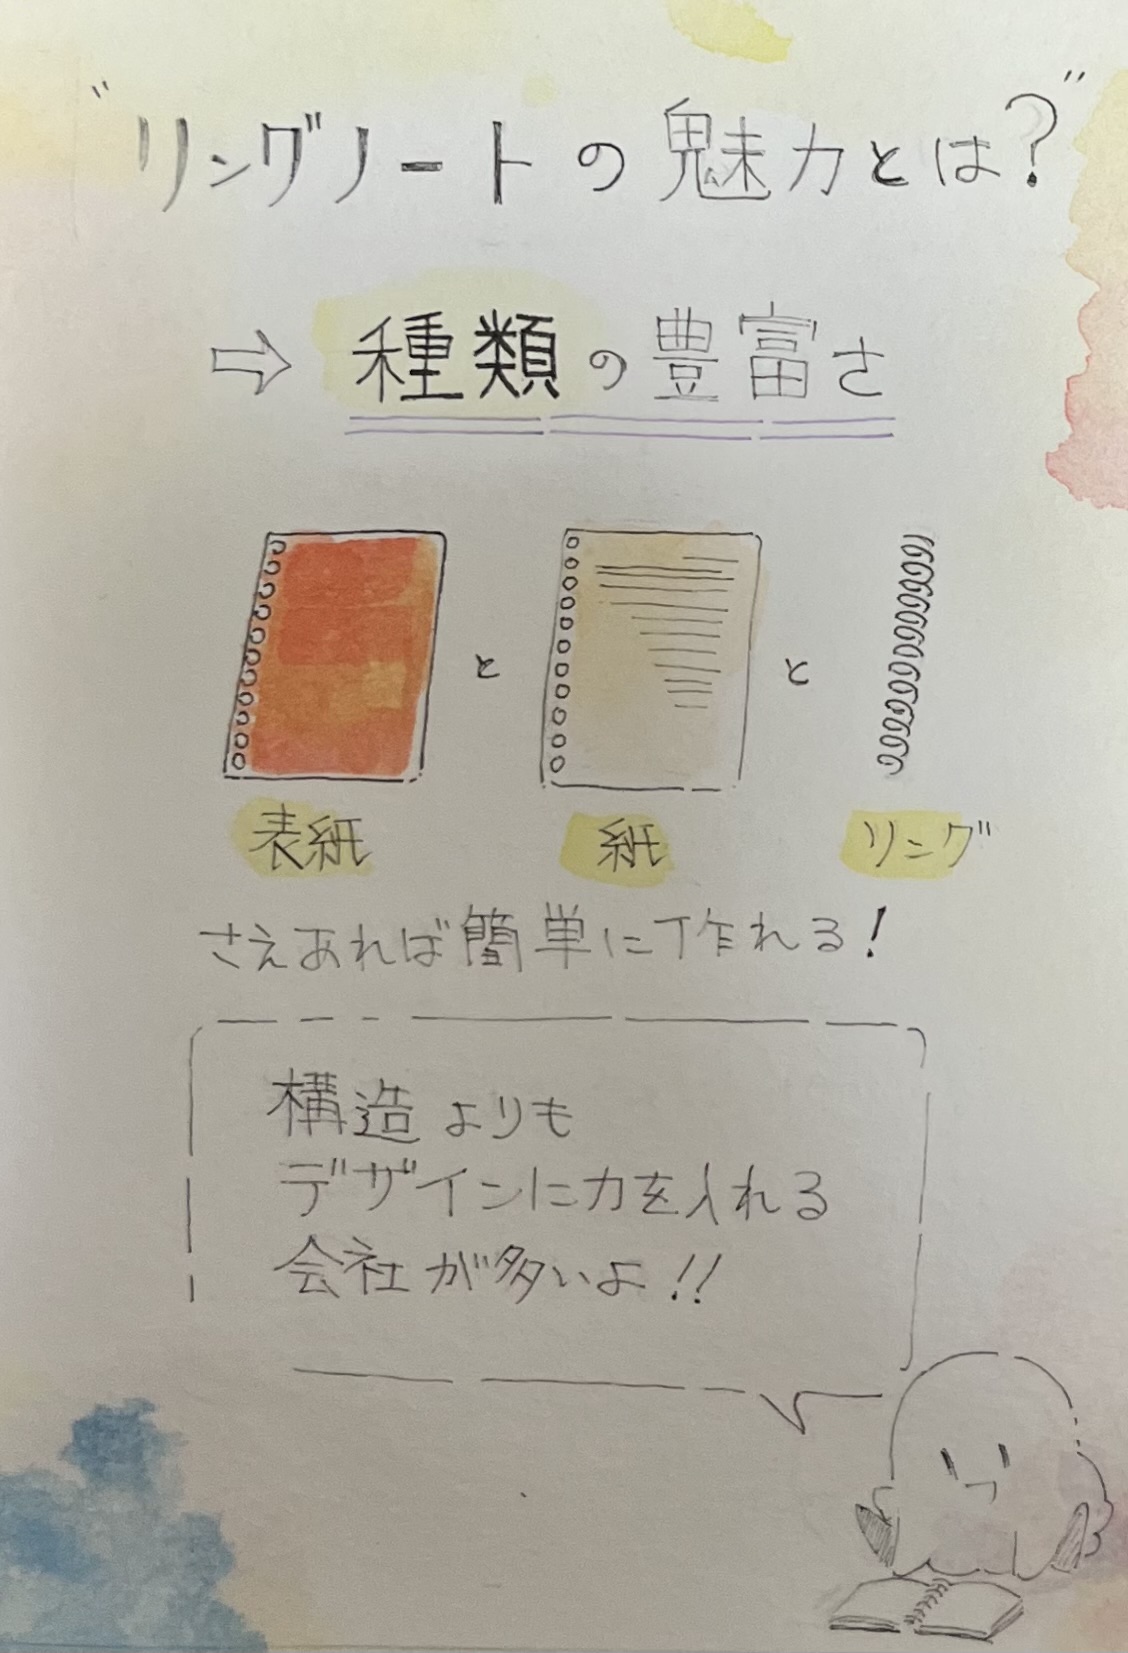 "リングノートの魅力とは?"
⇨ 種類の豊富さ
と と
表紙 紙 リング
さえあれば簡単に作れる!
構造よりも
デザインに力を入れる
会社が多いよ!!